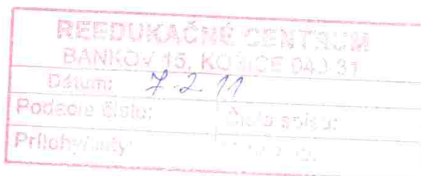 REEDUKAČNÉ CENTRUM
BANKOV 15, KOŠICE 040 31
Dátum: 7. 2. 11
Podacie číslo: Číslo spisu:
Prílohy/listy: